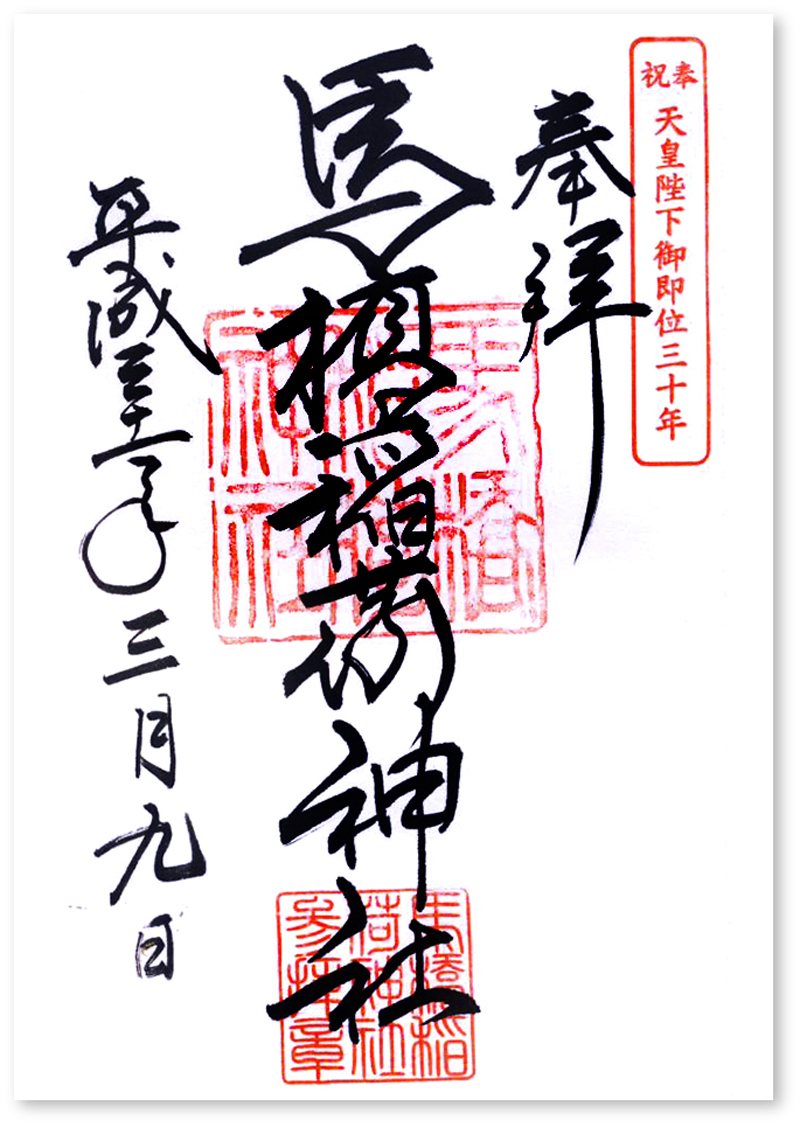 奉祝
天皇陛下御即位三十年
奉拝
馬橋稲荷神社
平成三十一年三月九日
馬橋
稲荷
神社
馬橋稲
荷神社
参拝章